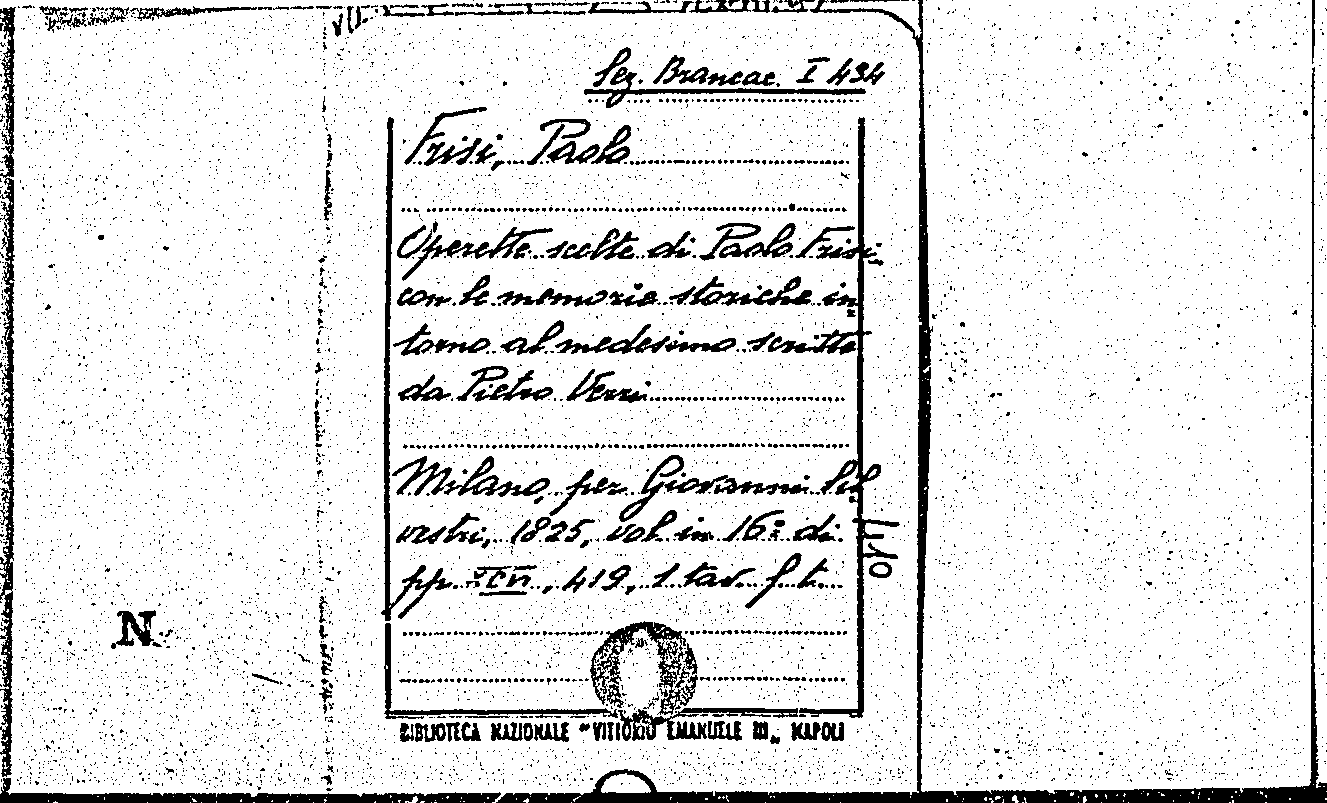 Sez. Brancac. I 434
Frisi, Paolo
Operette scelte di Paolo Frisi,
con le memorie storiche in„
torno al medesimo scritte
da Pietro Verri
Milano, per Giovanni Sil„
vestri, 1825, vol. in 16º di
pp. , 419, 1 tav. f. t.
N
BIBLIOTECA NAZIONALE "VITTORIO EMANUELE III„ NAPOLI